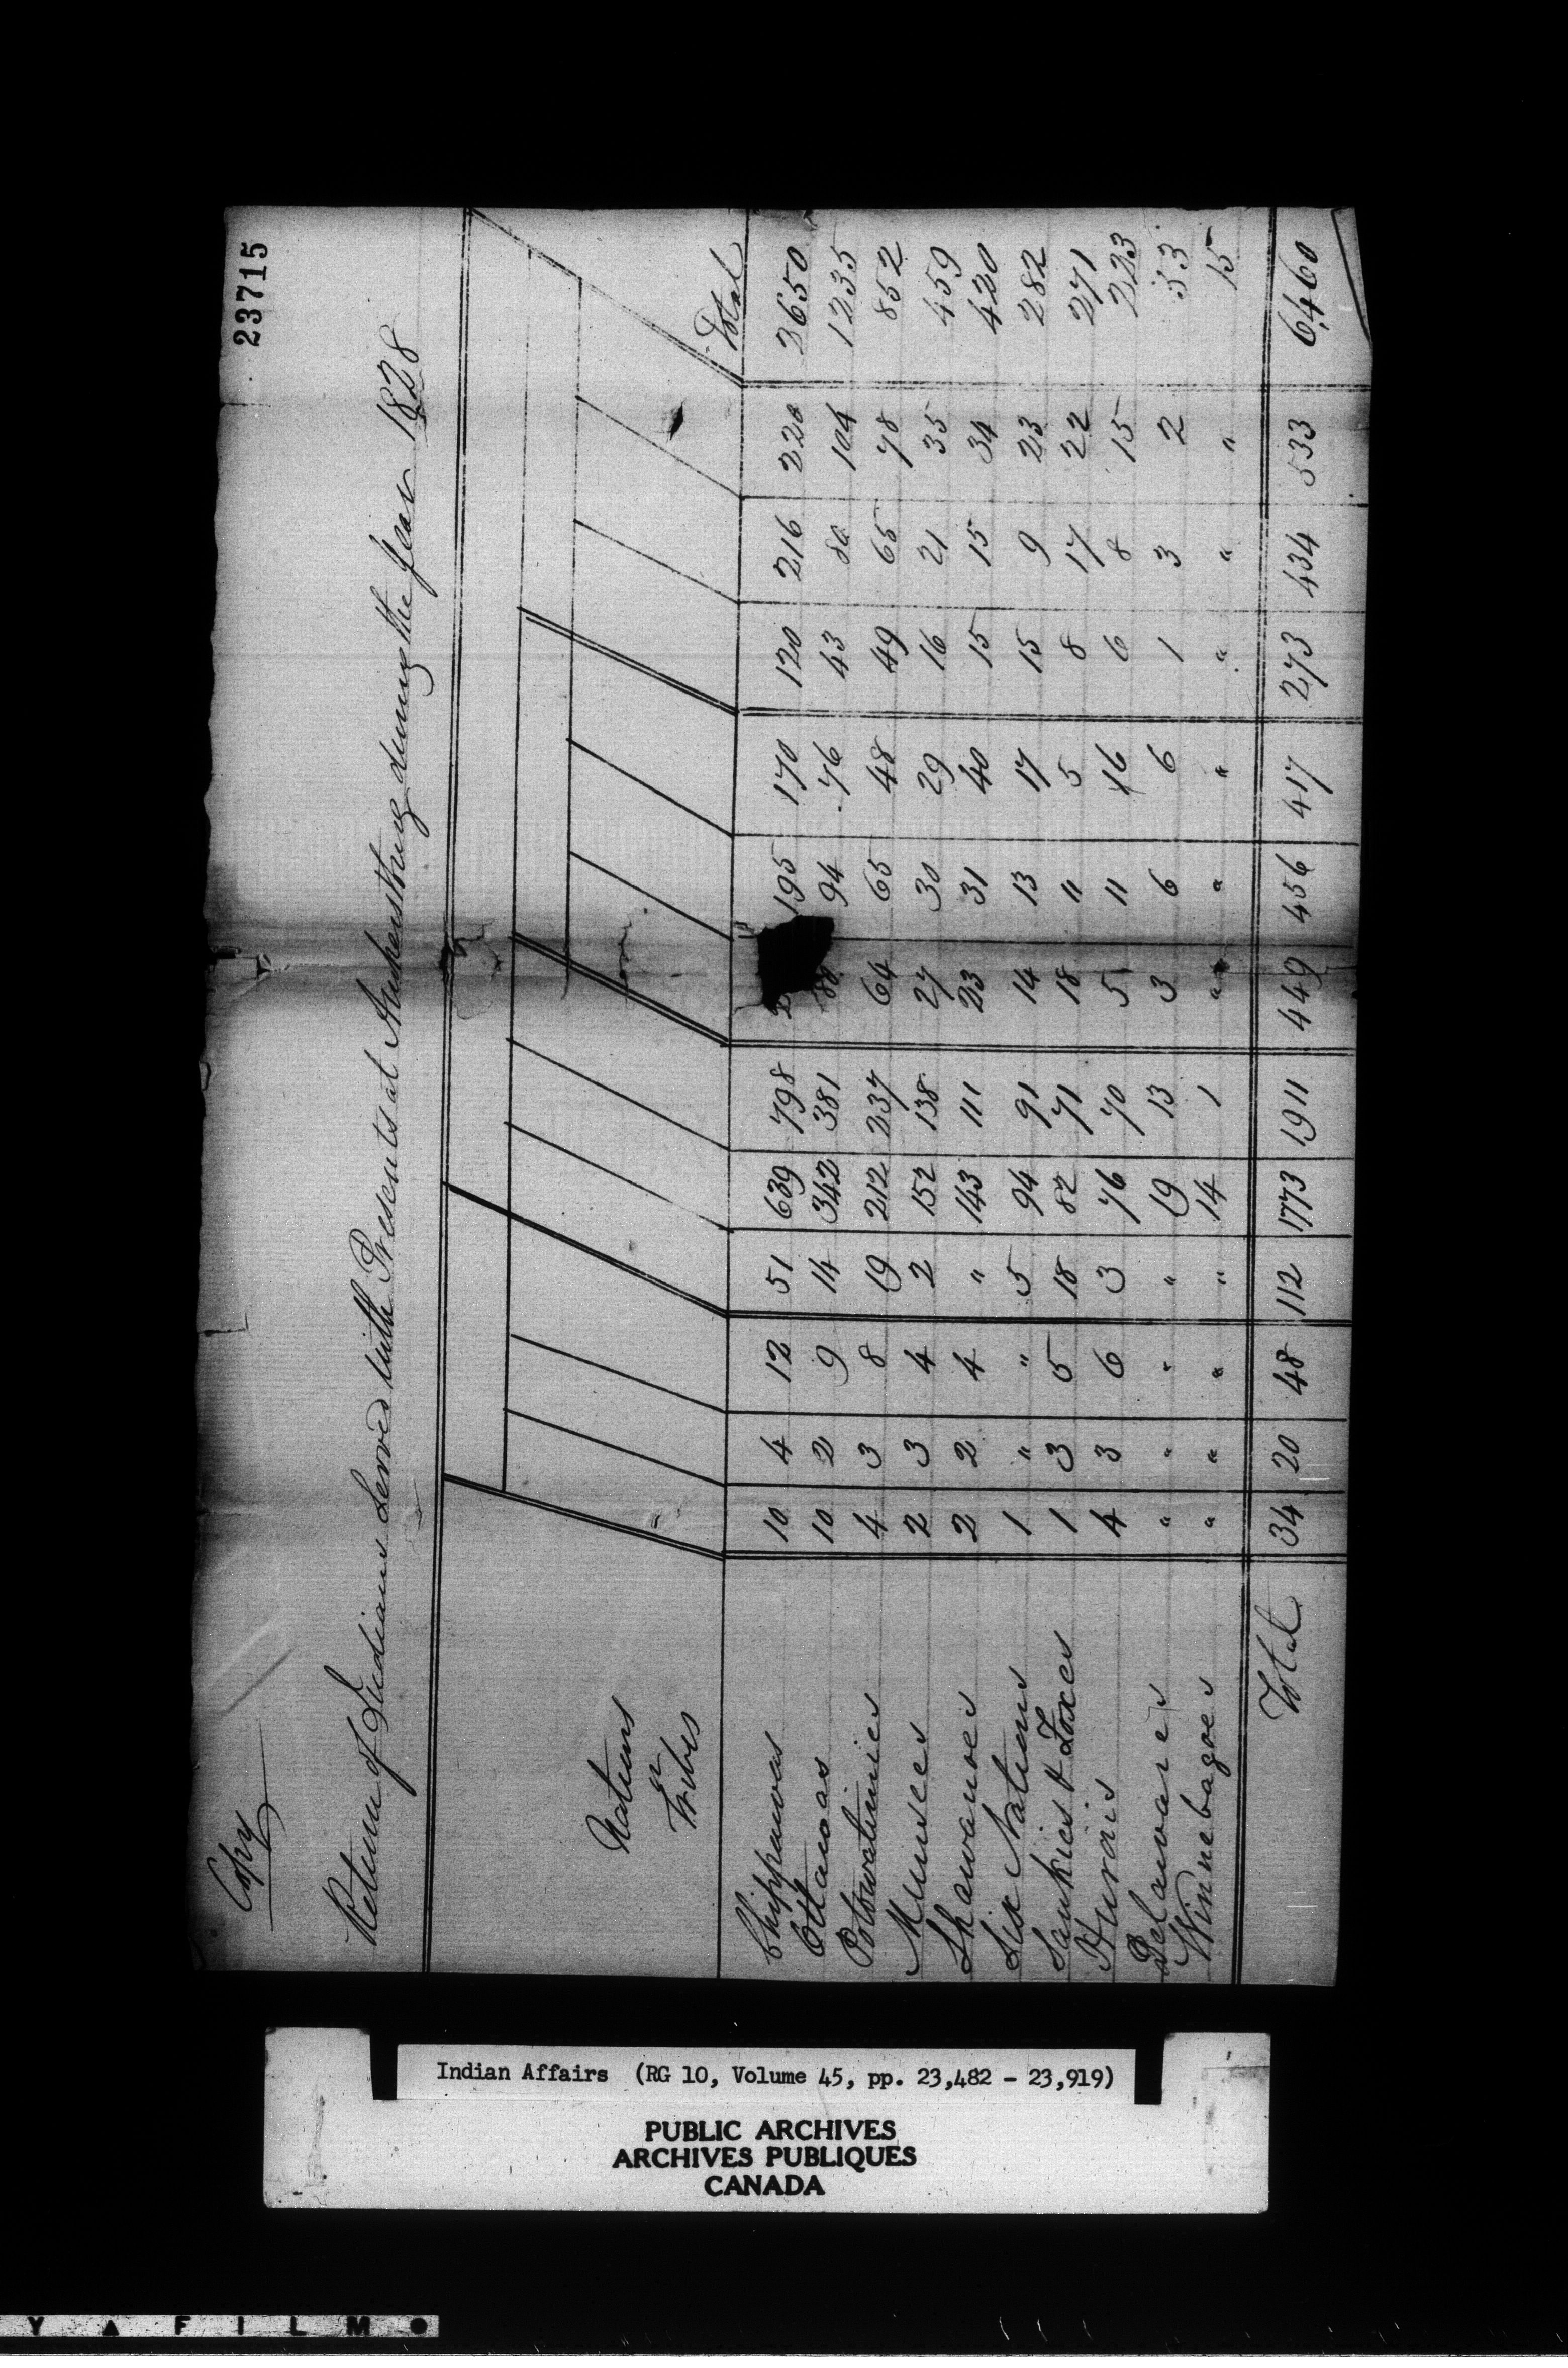 23715
Copy
Return of Indians Served with Presents at Amherstburg during the Year 1828
Nations or Tribes Total
Chippawas 10 4 12 51 639 798 195 170 120 216 220 2650
Ottawas 10 2 9 14 342 381 88 94 76 43 80 104 1235
Potowatimies 4 3 8 19 212 237 64 65 48 49 65 78 852
Munsees 2 3 4 2 152 138 27 30 29 16 21 35 459
Shawanoes 2 2 4 " 143 111 23 31 40 15 15 34 420
Six Nations 1 " " 5 94 91 14 13 17 15 9 23 282
Saukies & Foxes 1 3 5 18 82 71 18 " 5 8 17 22 271
Hurons 4 3 6 3 76 70 5 11 16 6 8 15 223
Delawares " " " " 19 13 3 6 6 1 3 2 53
Winnebagoes " " " " 14 1 " " " " " " 15
Total 34 20 48 112 1773 1911 449 456 417 273 434 533 6460
Indian Affairs (RG 10, Volume 45, pp. 23,482 - 23,919)
PUBLIC ARCHIVES
ARCHIVES PUBLIQUES
CANADA
Y A F I L M